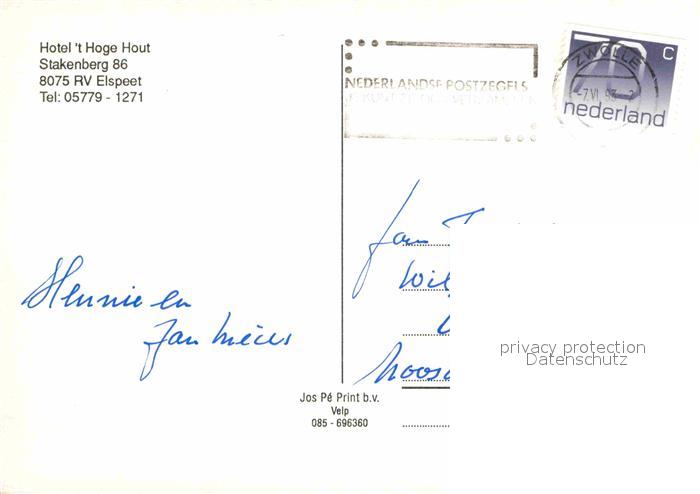 Hotel 't Hoge Hout
Stakenberg 86
8075 RV Elspeet
Tel: 05779 - 1271
NEDERLANDSE POSTZEGELS
ZWOLLE
-7.VI.93
70 C
nederland
Hennie en
Jan
Jan T
Wil
privacy protection
Datenschutz
Jos Pé Print b.v.
Velp
085 - 696360